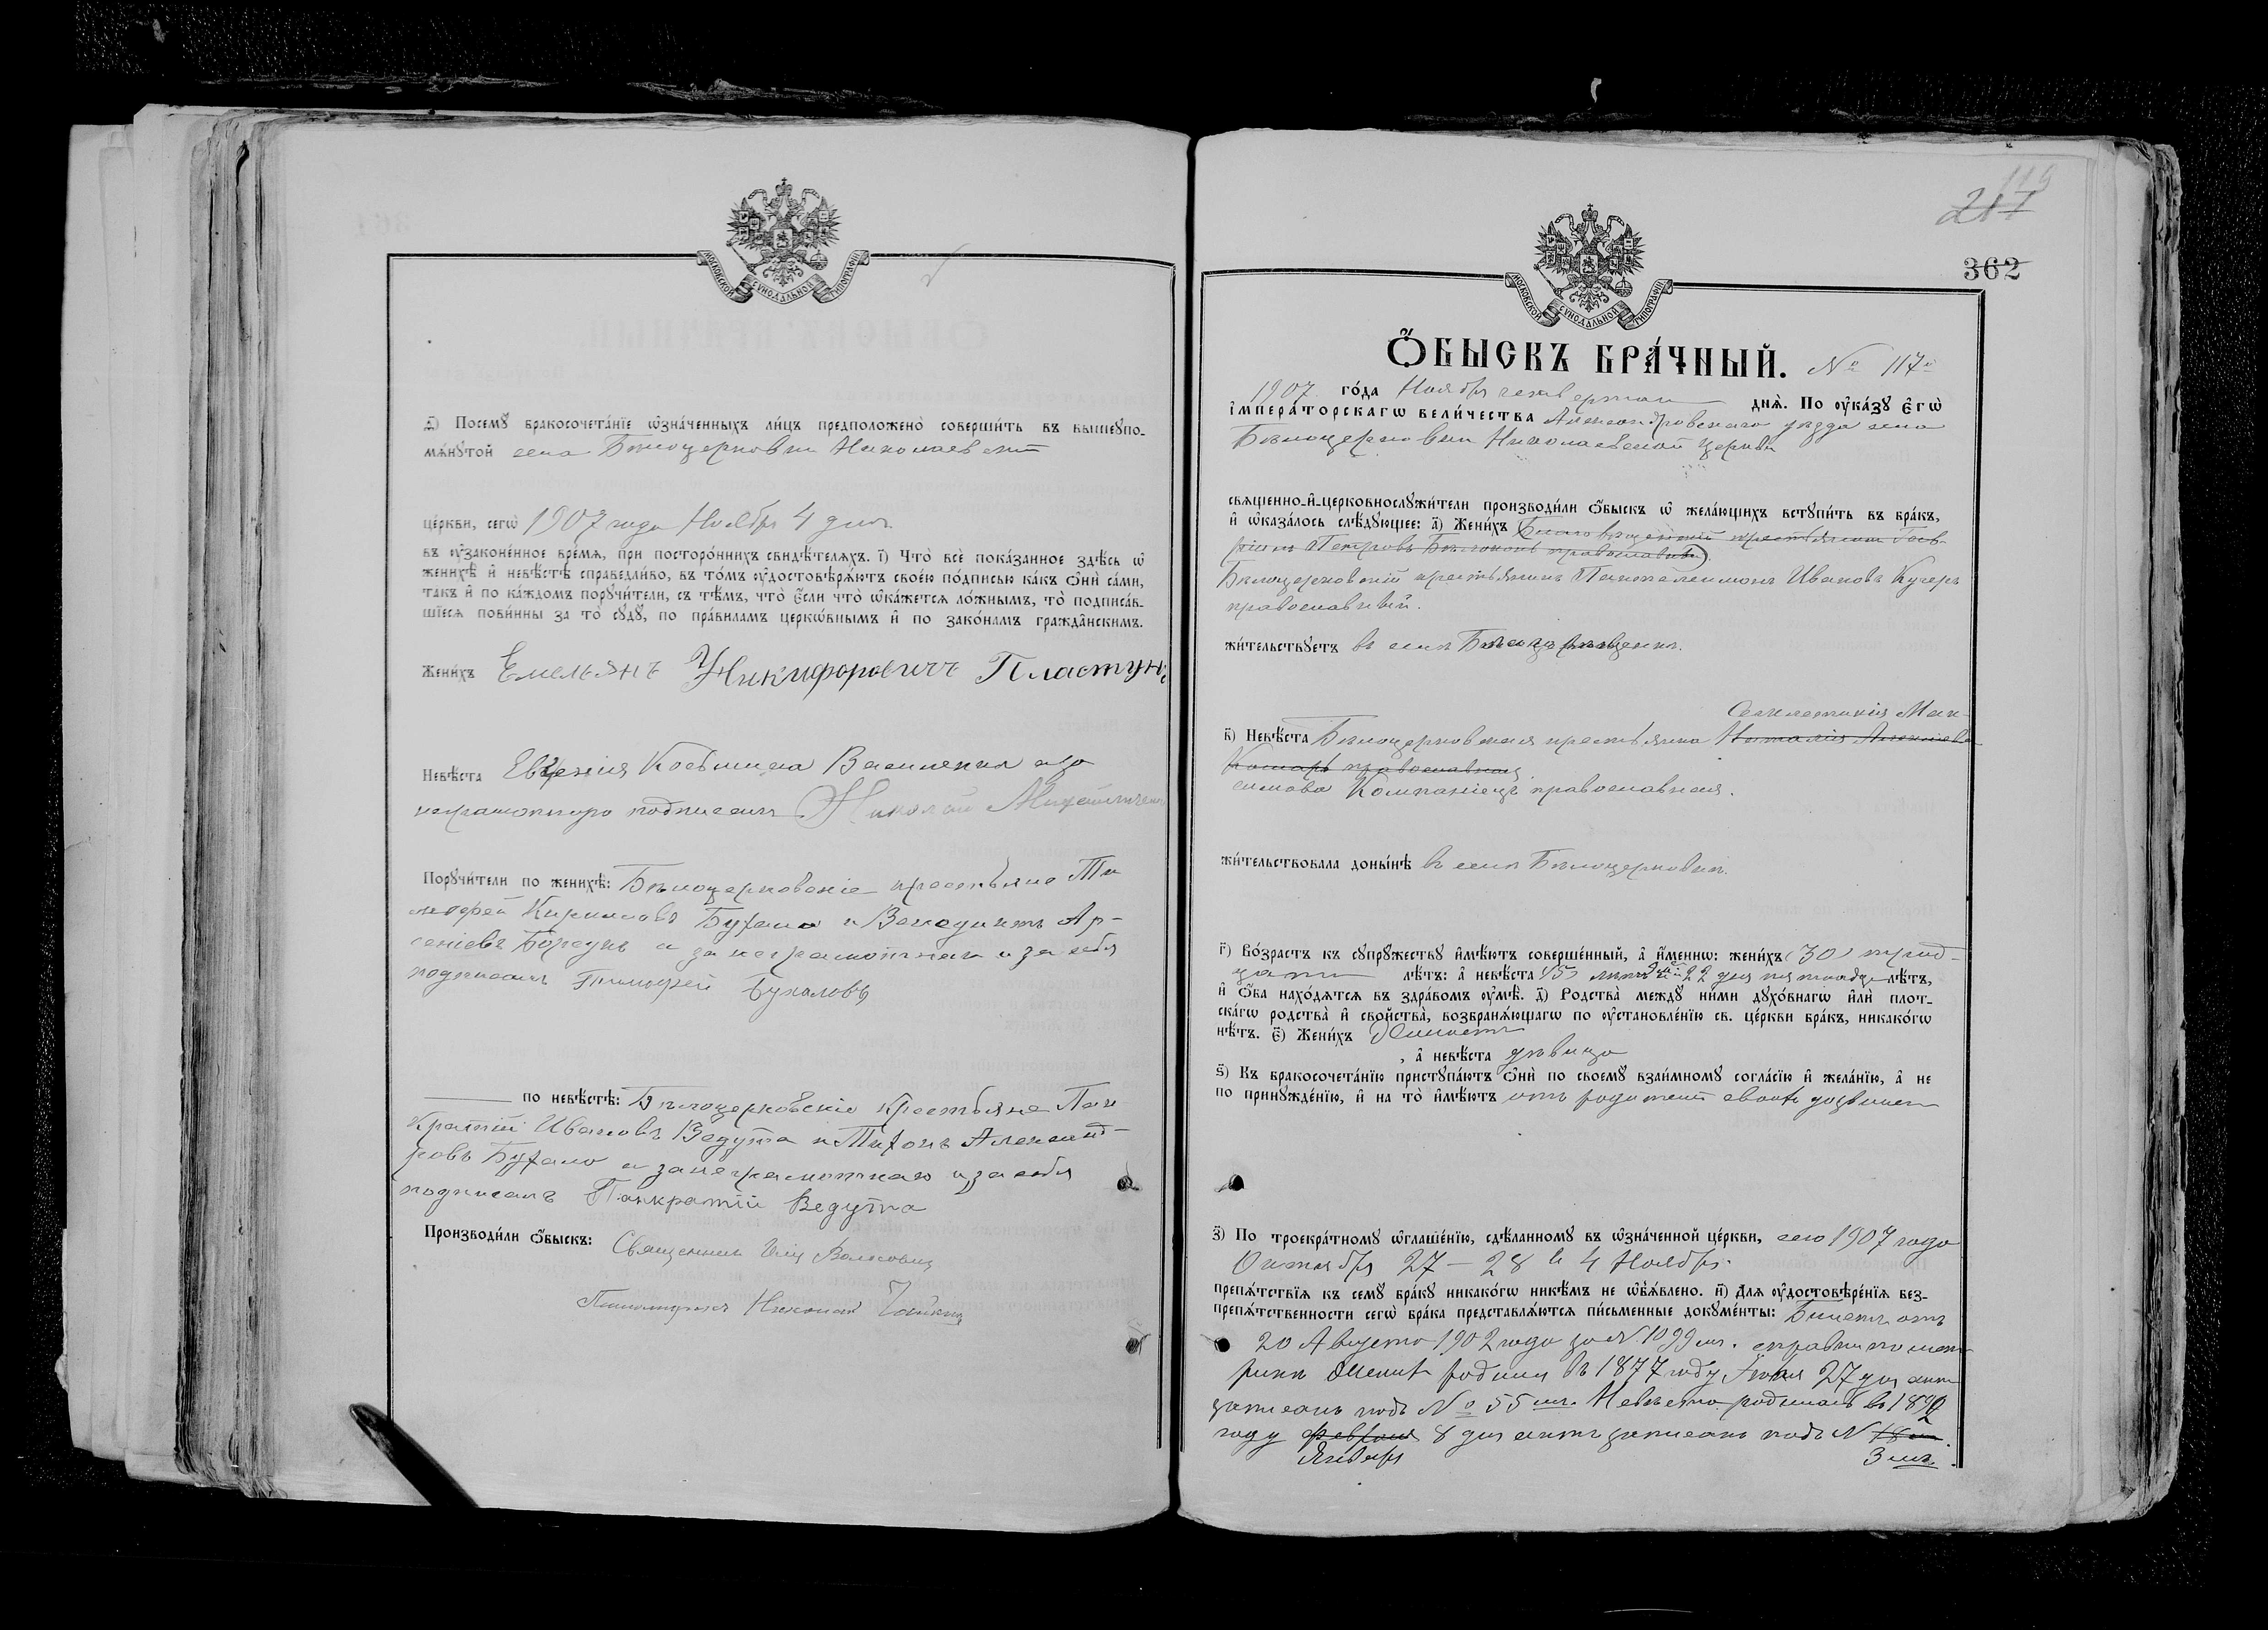 МОСКОВСКОЙ СУНОДАЛЬНОЙ ТИПОГРАФІИ
д҃і) Посемꙋ̀ бракосочета́нїе ѿзна́ченныхъ ли́цъ предположено̀ соверши́ть въ вышеꙋпо-
мѧ́нꙋтой села Бѣлоцерковки Николаевской
це́ркви, сегѡ̀ 1907 года Ноября 4 дня
въ ᲂу҆зако́ненное вре́мѧ, при посторо́ннихъ свидѣ́телѧхъ. і҃) Что̀ всѐ пока́занное здѣ́сь ѡ҆
женихѣ̀ и҆ невѣ́стѣ справедли́во, въ то́мъ ᲂу҆достовѣрѧ́ютъ свое́ю по́дписью ка́къ ѻ҆нѝ са́ми,
та́къ и҆ по ка́ждомъ порꙋчи́тели, съ тѣ́мъ, что̀ є҆́сли что̀ ѡ҆ка́жетсѧ ло́жнымъ, то̀ подписа́в-
шїесѧ пови́нны за то̀ сꙋдꙋ̀, по пра́виламъ церко́внымъ и҆ по зако́намъ гражда́нскимъ.
Жени́хъ Емельянъ Никифоровичъ Пластунъ
Невѣ́ста Евгенія Косьмина Василенко а за
неграмотную подписалъ Николай
Порꙋчи́тели по женихѣ̀: Бѣлоцерковскіе крестьяне Ти
мофей Кириловъ Бухало и Венедиктъ Ар-
сеніевъ и за неграмотнаго и за себя
подписалъ Тимофей Бухаловъ
по невѣ́стѣ: Бѣлоцерковскіе крестьяне Пан
кратій Ивановъ Ведута и Тихонъ Александ-
ровъ Бухало а за неграмотнаго и за себя
подписалъ Панкратій Ведута
Производи́ли ѻ҆́быскъ: Священникъ Илія
Псаломщикъ Николай
119
217
362
МОСКОВСКОЙ СУНОДАЛЬНОЙ ТИПОГРАФІИ
Ѻ҆́БЫСКЪ БРА́ЧНЫЙ. № 117й
1907 го́да Ноября четвертаго днѧ̀. По ᲂу҆ка́зꙋ є҆гѡ̀
і҆мпера́торскагѡ вели́чества Александровскаго уѣзда села
Бѣлоцерковки Николаевской церкви
свѧще́нно-и҆-церковнослꙋжи́тели производи́ли ѻ҆́быскъ ѡ҆ жела́ющихъ встꙋпи́ть въ бра́къ,
и҆ ѡ҆каза́лось слѣ́дꙋющее: а҃) Жени́хъ Благовѣщенскій крестьянинъ Гав-
ріилъ Петровъ Бѣлоконь православный
Бѣлоцерковскій крестьянинъ Пантелеимонъ Ивановъ Кучеръ
православный.
жи́тельствꙋетъ въ селѣ Бѣлоцерковкѣ.
Секлетикія Мак-
в҃) Невѣ́ста Бѣлоцерковская крестьянка Наталія Алексіева
православная
симова Компаніецъ православная.
жи́тельствовала доны́нѣ въ селѣ Бѣлоцерковкѣ.
г҃) Во́зрастъ къ сꙋпрꙋ́жествꙋ и҆мѣ́ютъ соверше́нный, а҆ и҆́меннѡ: жени́хъ (30) трид-
цати лѣ́тъ: а҆ невѣ́ста 15 лѣтъ 22 дня лѣ́тъ,
и҆ ѻ҆́ба нахо́дѧтсѧ въ здра́вомъ ᲂу҆мѣ̀. д҃) Родства̀ междꙋ̀ ни́ми дꙋхо́внагѡ и҆лѝ плот-
ска́гѡ родства̀ и҆ сво́йства̀, возбранѧ́ющагѡ по ᲂу҆становле́нїю св. це́ркви бра́къ, никако́гѡ
нѣ́тъ. є҃) Жени́хъ холостъ
, а҆ невѣ́ста дѣвица
ѕ҃) Къ бракосочета́нїю пристꙋпа́ютъ ѻ҆нѝ по своемꙋ̀ взаи́мномꙋ согла́сїю и҆ жела́нїю, а҆ не
по принꙋжде́нїю, и҆ на то̀ и҆мѣ́ютъ отъ родителей своихъ
з҃) По троекра́тномꙋ ѡ҆глаше́нїю, сдѣ́ланномꙋ въ ѡ҆зна́ченной це́ркви, сего 1907 года
Октября 27 — 28 и 4 Ноября.
препѧ́тствїѧ къ семꙋ̀ бра́кꙋ никако́гѡ никѣ́мъ не ѡ҆б̾ѧ́влено. и҃) Длѧ ᲂу҆достовѣре́нїѧ без-
препѧ́тственности сегѡ̀ бра́ка представлѧ́ютсѧ пи́сьменные докꙋме́нты: Билетъ отъ
20 Августа 1902 года за № 1099 справки по мет-
рикѣ Женихъ родился въ 1877 году Іюля 27 дня актъ
записанъ подъ № 55 мъ. Невѣста родилась въ 1892
году Февраля 8 дня актъ записанъ подъ № 18
Января 3 мъ.